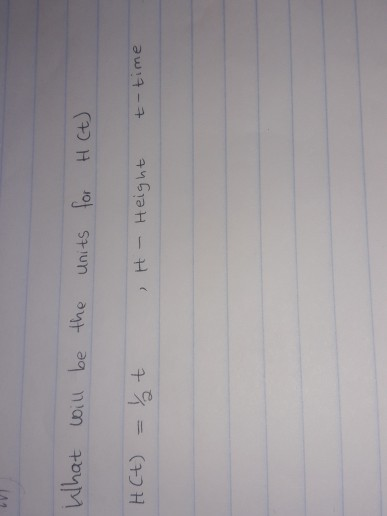 What will be the units for H(t)
H(t) = ½ t , H - Height t - time